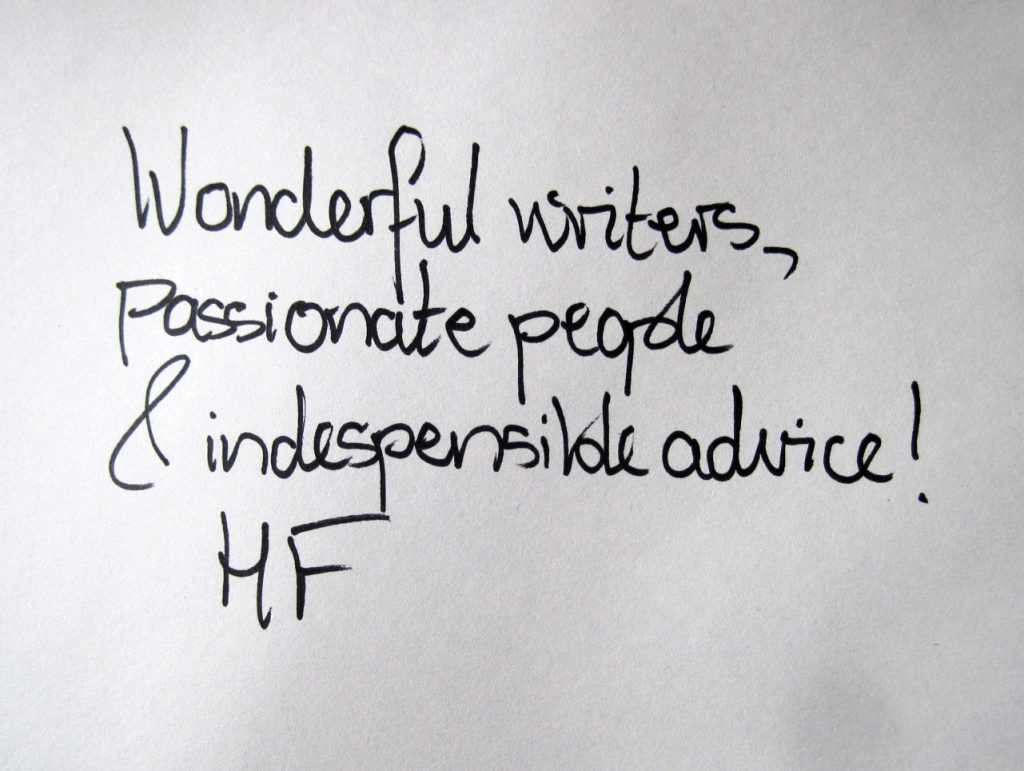 Wonderful writers,
passionate people
& indespensible advice!
HF